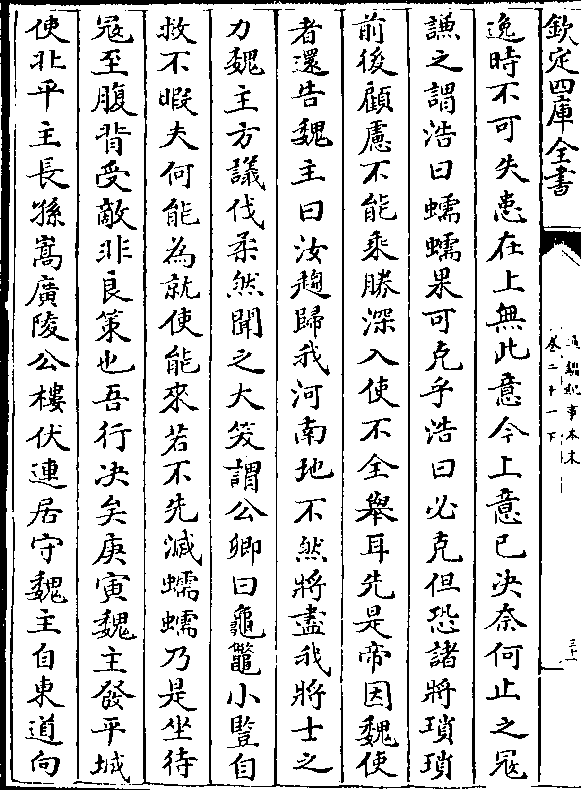 欽定四庫全書
通鑑紀事本末
卷二十一下
三十一
逸時不可失患在上無此意今上意已決奈何止之冦
謙之謂浩曰蠕蠕果可克乎浩曰必克但恐諸將瑣瑣
前後顧慮不能乘勝深入使不全舉耳先是帝因魏使
者還告魏主曰汝趨歸我河南地不然將盡我將士之
力魏主方議伐柔然聞之大笑謂公卿曰龜鼈小豎自
救不暇夫何能為就使能來若不先滅蠕蠕乃是坐待
冦至腹背受敵非良策也吾行决矣庚寅魏主發平城
使北平王長孫嵩廣陵公樓伏連居守魏主自東道向